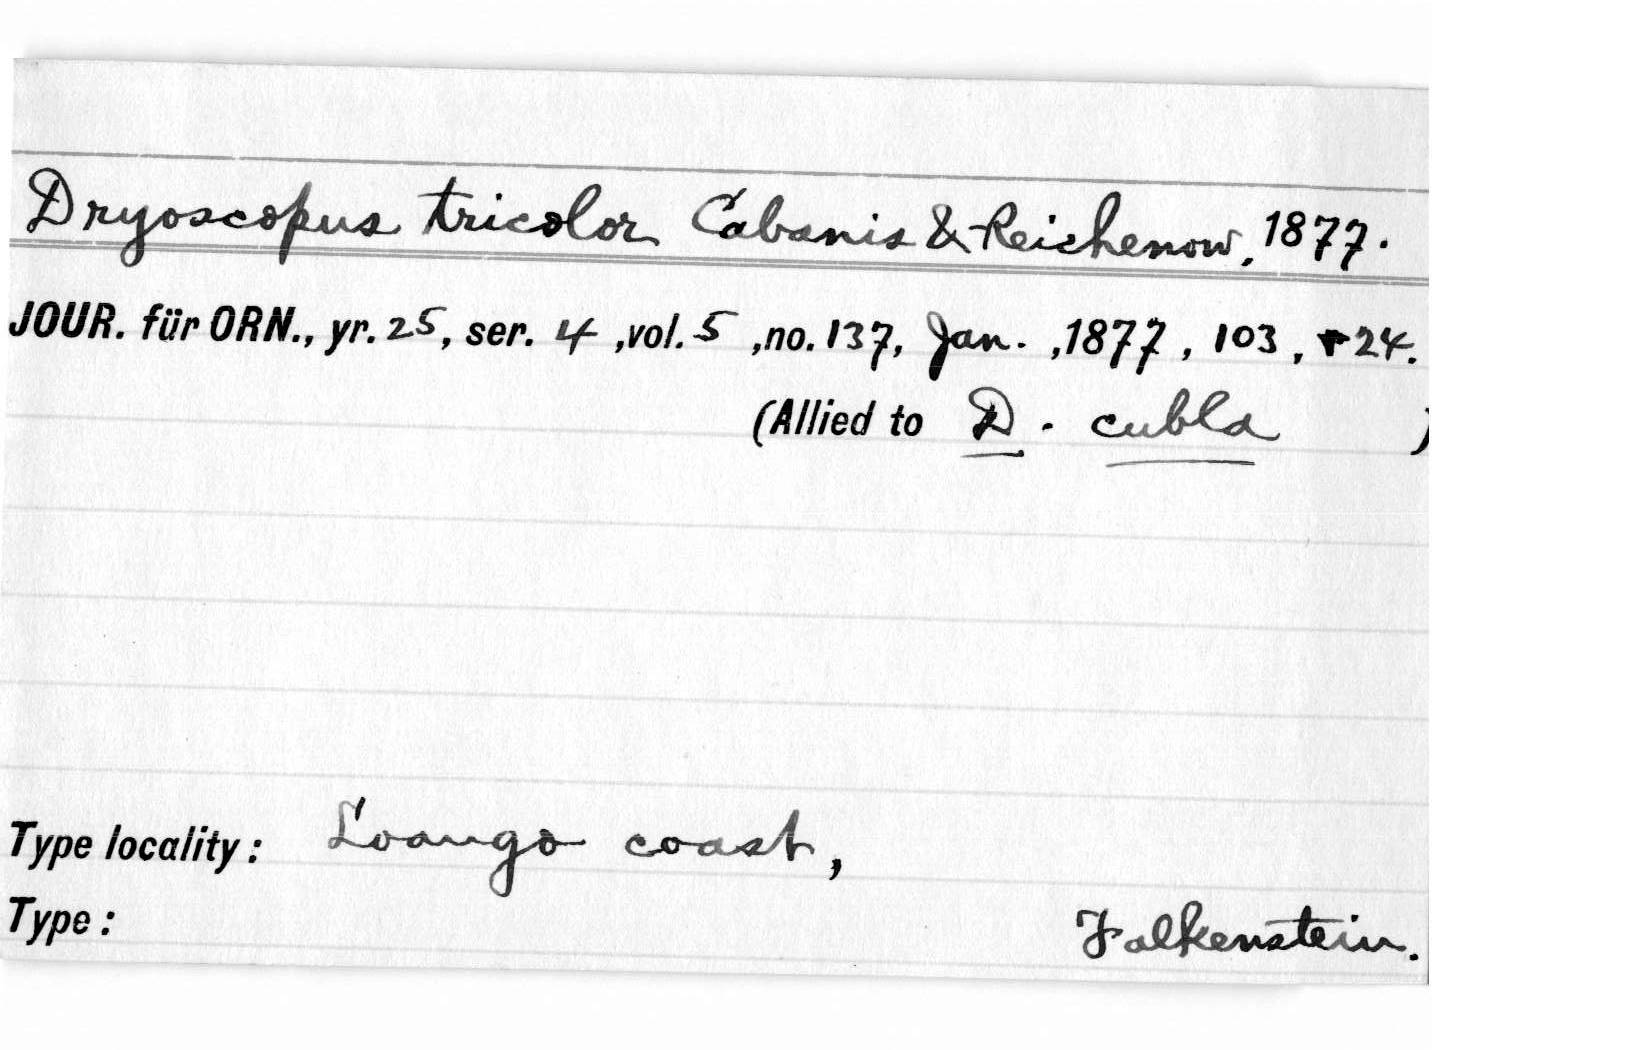 Dryoscopus tricolor Cabanis & Reichenow, 1877.
JOUR. für ORN., yr. 25, ser. 4 ,vol. 5 ,no. 137, Jan. ,1877 , 103 , + 24.
(Allied to D. cubla )
Type locality: Loango coast,
Type: Falkenstein.